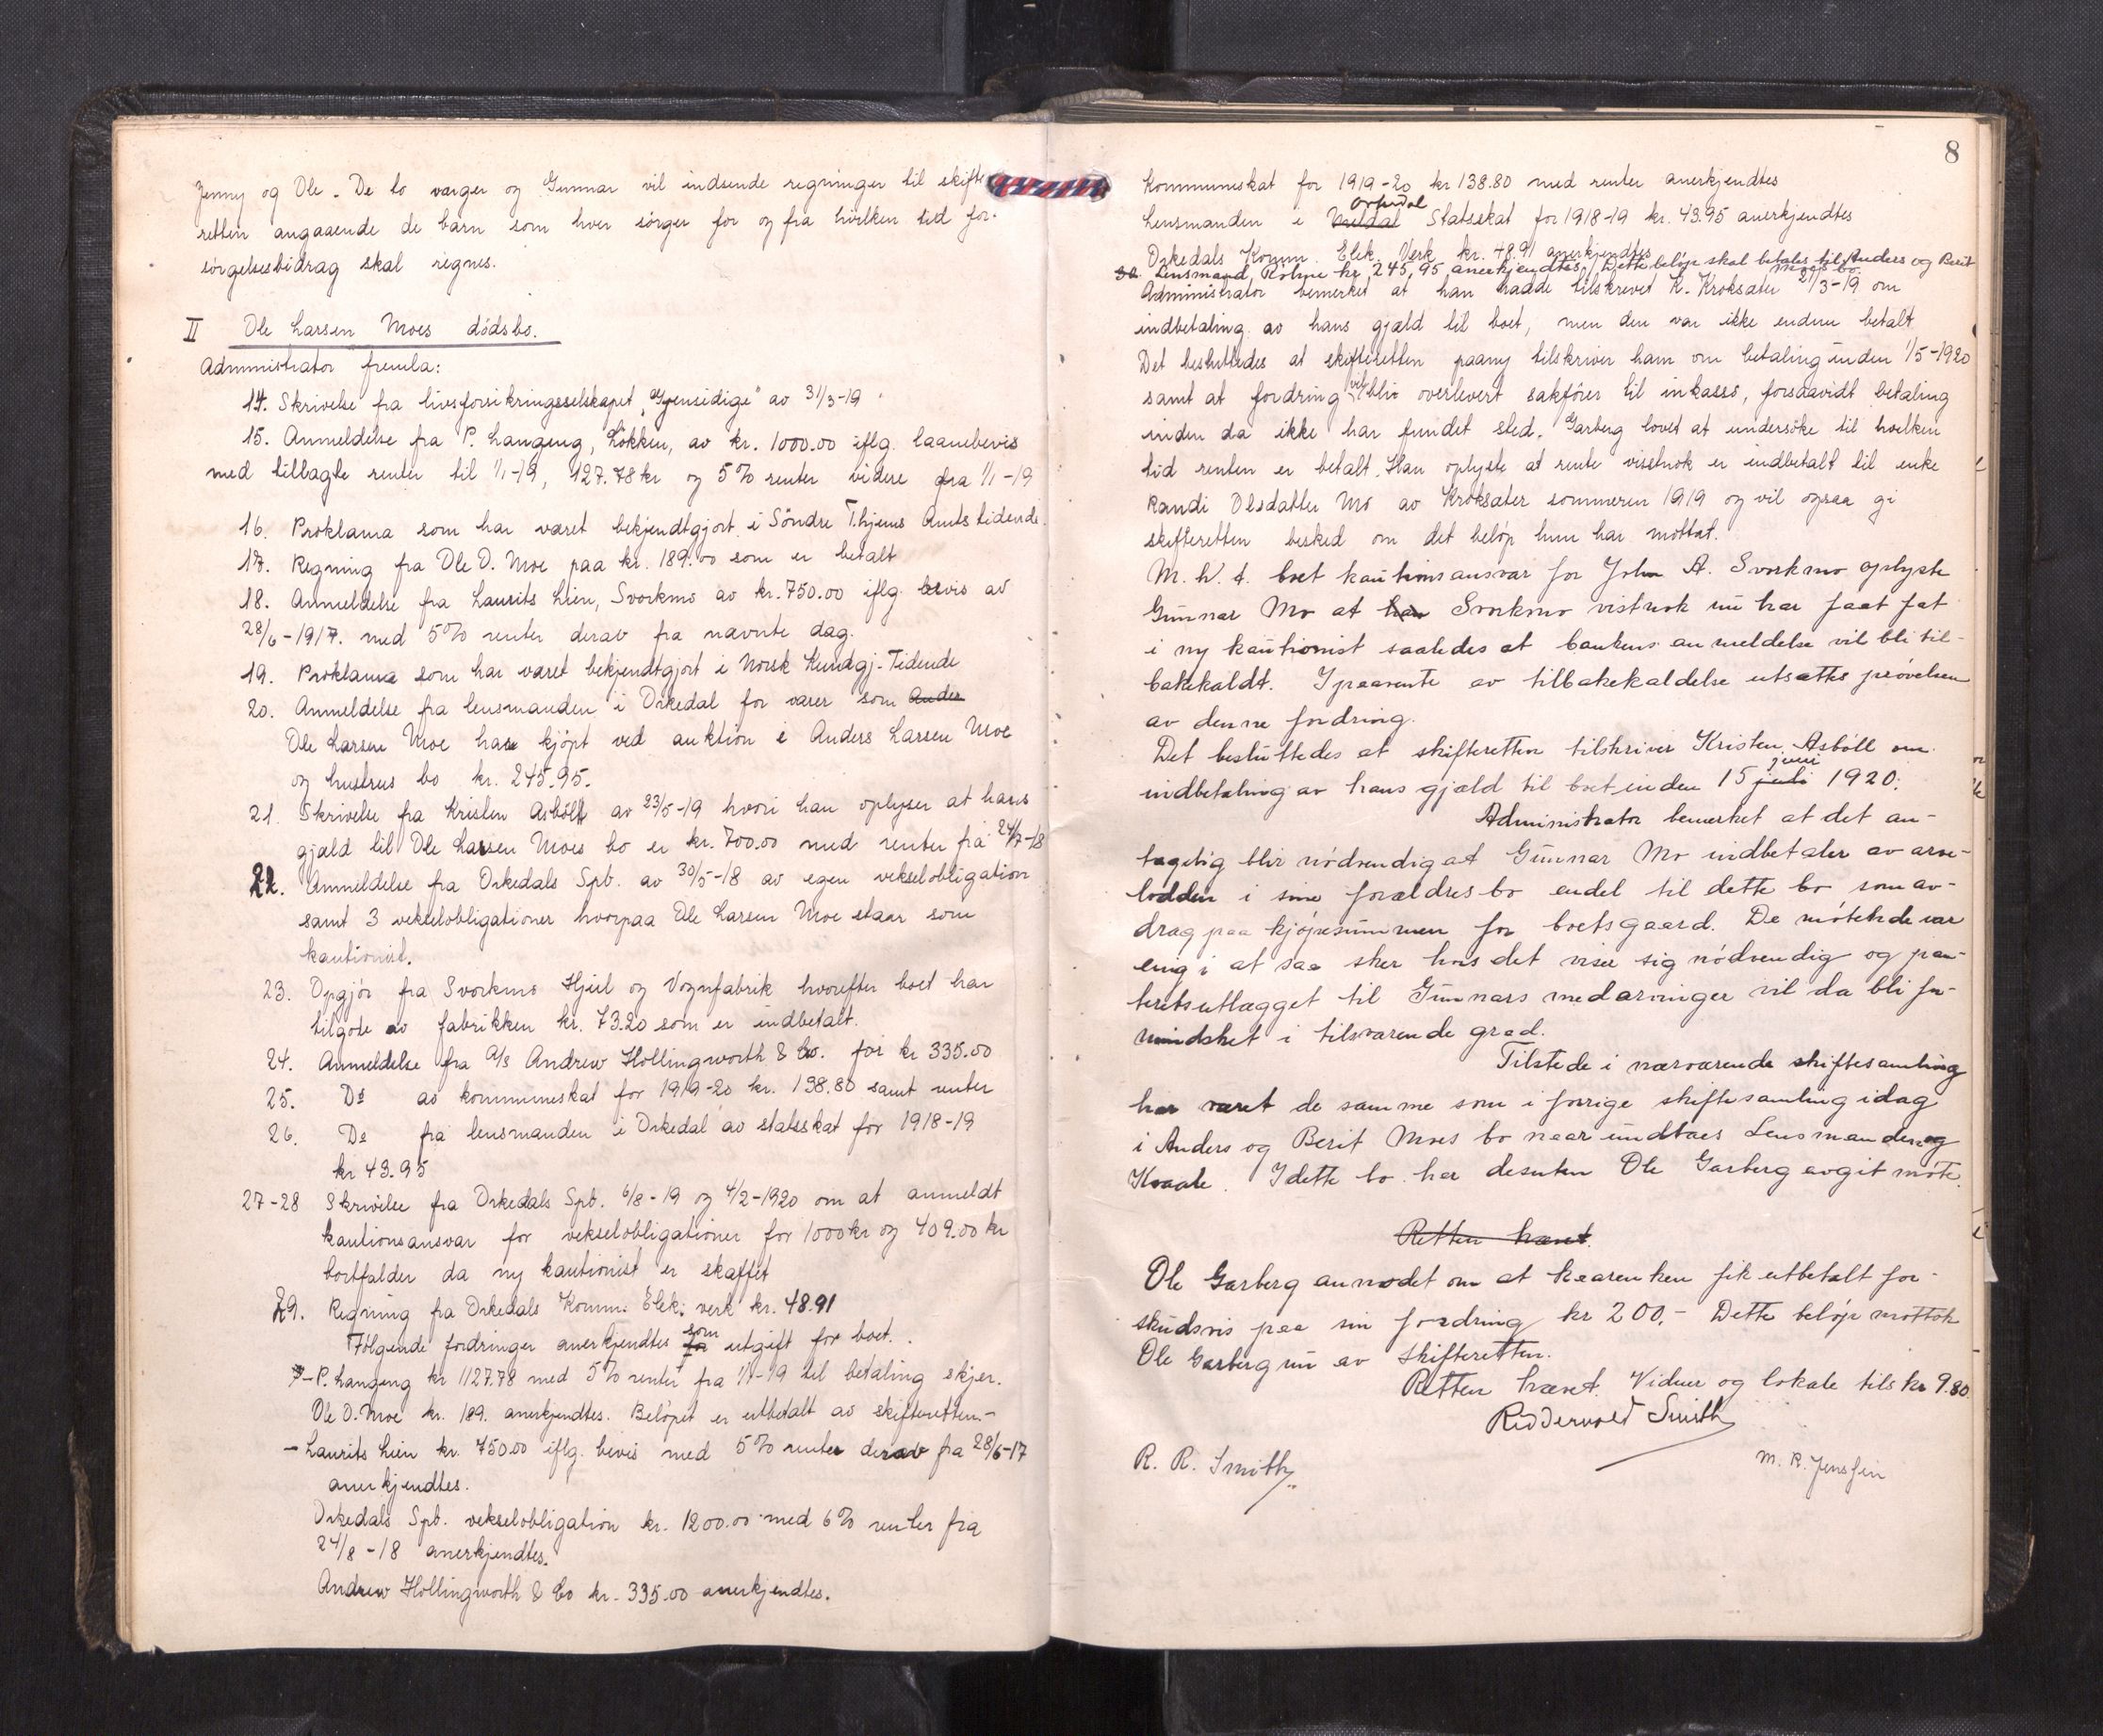 Jenny og Ole. De to værger og Gunnar vil indsende regninger til skifte
retten angaaende de barn som hver sörger for og fra hvilken tid for-
sörgelsesbidrag skal regnes.
II Ole Larsen Moes dödsbo.
Administrator fremla:
14. Skrivelse fra livsforsikringsselskapet "Gjensidige" av 31/3-19
15. Anmeldelse fra P. Langeng, Lökken, av kr. 1000.00 iflg. laanebevis
med tillagte renter til 1/1-19, 127.78 kr og 5% renter videre fra 1/1-19
16. Proklama som har været bekjendtgjort i Söndre T.hjems Amtstidende.
17. Regning fra Ole O. Moe paa kr. 189.00 som er betalt
18. Anmeldelse fra Laurits Lien, Svorkmo av kr. 750.00 iflg. bevis av
28/6-1917. med 5% renter derav fra nævnte dag.
19. Proklama som har været bekjendtgjort i Norsk Kundgj.-Tidende
20. Anmeldelse fra lensmanden i Orkedal for varer som Ander
Ole Larsen Moe har kjöpt ved auktion i Anders Larsen Moe
og hustrus bo kr. 245.95.
21. Skrivelse fra Kristen Asböll av 23/5-19 hvori han oplyser at hans
gjæld til Ole Larsen Moes bo er kr. 700.00 med renter fra 24/7-18
22. Anmeldelse fra Orkedals Spb. av 30/5-18 av egen vekselobligation
samt 3 vekselobligationer hvorpaa Ole Larsen Moe staar som
kautionist.
23. Opgjör fra Svorkmo Hjul og Vognfabrik hvorefter boet har
tilgode av fabrikken kr. 73.20 som er indbetalt.
24. Anmeldelse fra A/S Andrew Hollingworth & Co. for kr 335.00
25. Do av kommuneskat for 1919-20 kr. 138.80 samt renter
26. Do fra lensmanden i Orkedal av statsskat for 1918-19
kr 43.95
27-28 Skrivelse fra Orkedals Spb. 6/8-19 og 4/2-1920 om at anmeldt
kautionsansvar for vekselobligationer for 1000 kr og 409.00 kr
bortfalder da ny kautionist er skaffet
29. Regning fra Orkedals Komm. Elek. verk kr. 48.91
Fölgende fordringer anerkjendtes for som utgift for boet.
- P. Langeng kr 1127.78 med 5% renter fra 1/1-19 til betaling skjer.
Ole O. Moe kr. 189. anerkjendtes. Belöpet er utbetalt av skifteretten.-
- Laurits Lien kr. 750.00 iflg. bevis med 5% renter derav fra 28/6-17
anerkjendtes.
Orkedals Spb. vekselobligation kr. 1200.00 med 6% renter fra
24/8-18 anerkjendtes.
Andrew Hollingworth & Co kr. 335.00 anerkjendtes.
8
Kommuneskat for 1919-20 kr 138.80 med renter anerkjendtes
Lensmanden i Meldal Orkedal Statsskat for 1918-19 kr. 43.95 anerkjendtes
Orkedals Komm. Elek. Verk kr. 48.91 anerkjendtes
Lensmand Holme kr 245,95 anerkjendtes. Dette belöp skal betales til Anders og Berit
Moes bo.
Administrator bemerket at han hadde tilskrevet K. Kroksæter 21/3-19 om
indbetaling av hans gjæld til boet, men den var ikke endnu betalt
Det besluttedes at skifteretten paany tilskriver ham om betaling inden 1/5-1920
samt at fordring vil bli overlevert sakförer til inkasso, forsaavidt betaling
inden da ikke har fundet sted. Garberg lovet at undersöke til hvilken
tid renten er betalt. Han oplyste at rente visstnok er indbetalt til enke
Randi Olsdatter Mo av Kroksæter sommeren 1919 og vil ogsaa gi
skifteretten besked om det belöp hun har mottat.
M. h. t. boet kautionsansvar for John A. Svorkmo oplyste
Gunnar Mo at han Svorkmo vistnok nu har faat fat
i ny kautionist saaledes at bankens anmeldelse vil bli til-
bakekaldt. I paavente av tilbakekaldelse utsættes prövelsen
av denne fordring.
Det besluttedes at skifteretten tilskriver Kristen Asböll om
indbetaling av hans gjæld til boet inden 15 juli juni 1920.
Administrator bemerket at det an-
tagelig blir nödvendig at Gunnar Mo indbetaler av arve-
lodden i sine forældres bo endel til dette bo som av-
drag paa kjöpesummen for boets gaard. De mötende var
enig i at saa sker hvis det viser sig nödvendig og pan-
teretsutlægget til Gunnars medarvinger vil da bli for-
mindsket i tilsvarende grad.
Tilstede i nærværende skiftesamling
har været de samme som i forrige skiftesamling idag
i Anders og Berit Moes bo naar undtaes Lensmanden og
Kvaale. I dette bo har desuten Ole Garberg avgit möte.
Retten hævet.
Ole Garberg anmodet om at kaarenken fik utbetalt for-
skudsvis paa sin fordring kr 200.- Dette belöp mottok
Ole Garberg nu av skifteretten.
Retten hævet. Vidner og lokale tils kr 9.80
Riddervold Smith
R. R. Smith
M. R. Jenssen